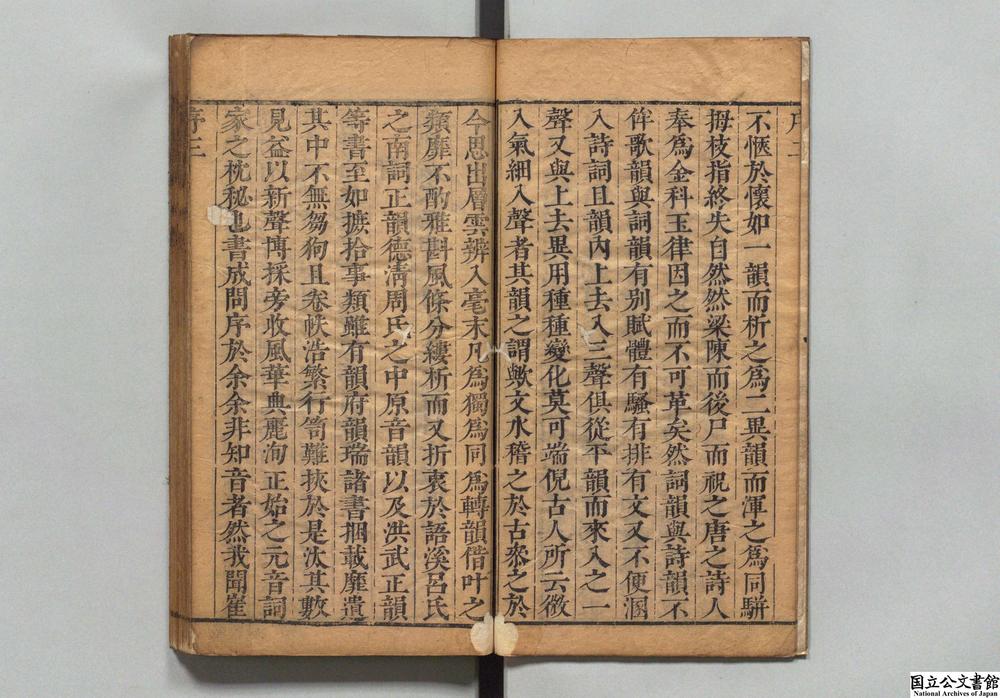 不愜於懷如一韻而析之爲二異韻而渾之爲同駢
拇枝指終失自然然梁陳而後尸而祝之唐之詩人
奉爲金科玉律因之而不可革矣然詞韻與詩韻不
侔歌韻與詞韻有別賦體有騷有排有文又不便溷
入詩詞且韻內上去入三聲俱從平韻而來入之一
聲又與上去異用種種變化莫可端倪古人所云微
入氣細入聲者其韻之謂歟文水稽之於古叅之於
今思出層雲辨入毫末凡爲獨爲同爲轉韻借叶之
類靡不酌雅斟風條分縷析而又折衷於語溪呂氏
之南詞正韻德淸周氏之中原音韻以及洪武正韻
等書至如摭拾事類雖有韻府韻瑞諸書捆載靡遺
其中不無芻狗且卷帙浩繁行笥難挾於是汰其數
見益以新聲博採旁收風華典麗洵正始之元音詞
家之枕秘也書成問序於余余非知音者然我聞崔
序三
国立公文書館
National Archives of Japan